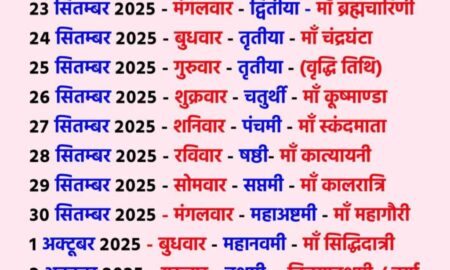 23 सितम्बर 2025 - मंगलवार - द्वितीया - माँ ब्रह्मचारिणी
24 सितम्बर 2025 - बुधवार - तृतीया - माँ चंद्रघंटा
25 सितम्बर 2025 - गुरुवार - तृतीया - (वृद्धि तिथि)
26 सितम्बर 2025 - शुक्रवार - चतुर्थी - माँ कूष्माण्डा
27 सितम्बर 2025 - शनिवार - पंचमी - माँ स्कंदमाता
28 सितम्बर 2025 - रविवार - षष्ठी- माँ कात्यायनी
29 सितम्बर 2025 - सोमवार - सप्तमी - माँ कालरात्रि
30 सितम्बर 2025 - मंगलवार - महाअष्टमी - माँ महागौरी
1 अक्टूबर 2025 - बुधवार - महानवमी - माँ सिद्धिदात्री